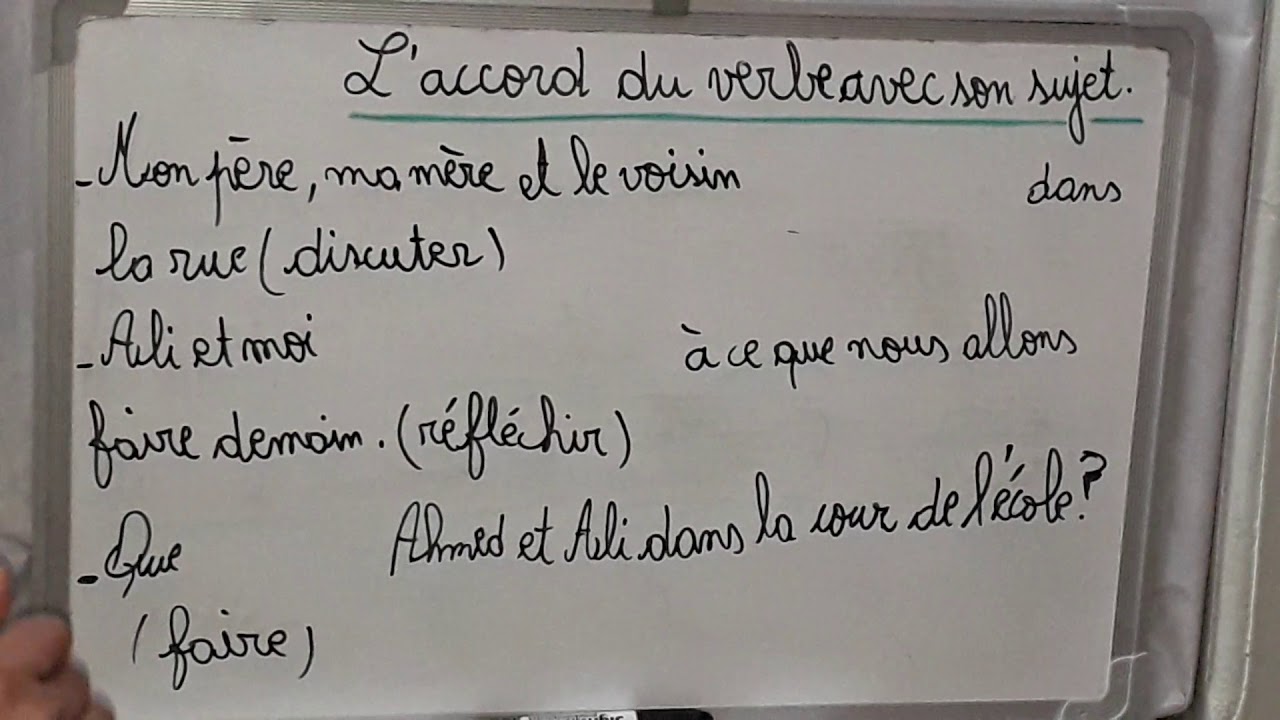 L'accord du verbe avec son sujet.
- Mon père, ma mère et le voisin dans
la rue (discuter)
- Ali et moi à ce que nous allons
faire demain. (réfléchir)
- Que Ahmed et Ali dans la cour de l'école?
(faire)